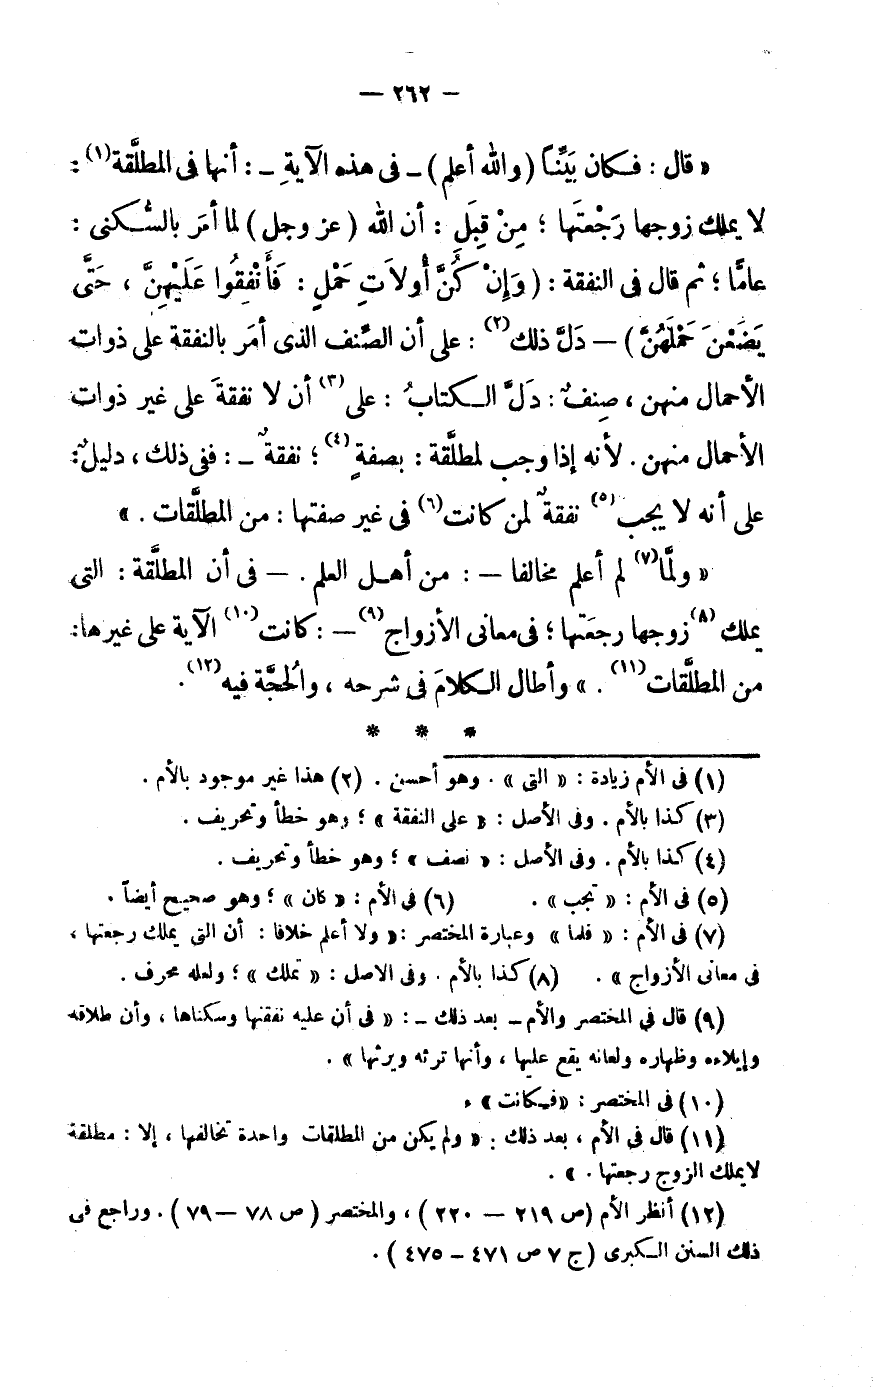 — ٢٦٢ —
« قال : فكان بَيِّنًا (والله أعلم) ـ فى هذه الآيةِ ـ : أنها فى المطلَّقة(١) :
لا يملك زوجها رَجْعتَها ؛ مِنْ قِبَلِ : أن الله (عز وجل) لما أمَر بالسُّكنى :
عامًّا ؛ ثم قال فى النفقة : (وَإِنْ كُنَّ أُولَاتِ حَمْلٍ : فَأَنْفِقُوا عَلَيْهِنَّ ، حَتَّى
يَضَعْنَ حَمْلَهُنَّ ) — دَلَّ ذلك(٢) : على أن الصِّنف الذى أمَر بالنفقة على ذوات
الأحمال منهن ، صِنفٌ : دَلَّ الكتابُ : على(٣) أن لا نفقةَ على غير ذوات
الأحمال منهن . لأنه إذا وجب لمطلَّقة : بصفةٍ(٤) ؛ نفقةٌ ـ : ففى ذلك ، دليلٌ :
على أنه لا يجب(٥) نفقةٌ لمن كانت(٦) فى غير صفتها : من المطلَّقات . »
« ولَّما(٧) لم أعلم مخالفا — : من أهل العلم . — فى أن المطلَّقة : التى
يملك(٨) زوجها رجعَتها ؛ فى معانى الأزواج(٩) — : كانت(١٠) الآية على غيرها :
من المطلَّقات(١١) . » وأطال الكلامَ فى شرحه ، والحجَّة فيه(١٢) .
* * *
(١) فى الأم زيادة : « التى » . وهو أحسن . (٢) هذا غير موجود بالأم .
(٣) كذا بالأم . وفى الأصل : « على النفقة » ؛ وهو خطأ وتحريف .
(٤) كذا بالأم . وفى الأصل : « نصف » ؛ وهو خطأ وتحريف .
(٥) فى الأم : « تجب » . (٦) فى الأم : « كان » ؛ وهو صحيح أيضاً .
(٧) فى الأم : « فلما » وعبارة المختصر : « ولا أعلم خلافا : أن التى يملك رجعتها ،
فى معانى الأزواج » . (٨) كذا بالأم . وفى الاصل : « تملك » ؛ ولعله محرف .
(٩) قال فى المختصر والأم ـ بعد ذلك ـ : « فى أن عليه نفقتها وسكناها ، وأن طلاقه
وإيلاءه وظهاره ولعانه يقع عليها ، وأنها ترثه ويرثها » .
(١٠) فى المختصر : « فكانت » .
(١١) قال فى الأم ، بعد ذلك : « ولم يكن من المطلقات واحدة تخالفها ، إلا : مطلقة
لايملك الزوج رجعتها . » .
(١٢) أنظر الأم (ص ٢١٩ — ٢٢٠ ) ، والمختصر ( ص ٧٨ — ٧٩ ) . وراجع فى
ذلك السنن الكبرى ( ج ٧ ص ٤٧١ — ٤٧٥ ) .